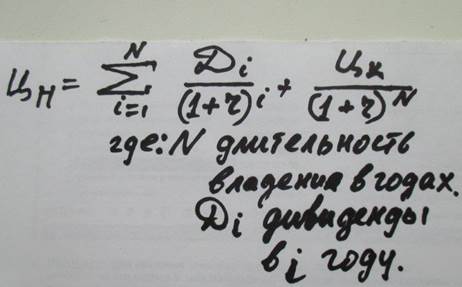 Цн = N∑i=1 Дi/(1+r)^i + Цк/(1+r)^N
где: N длительность
владения в годах.
Дi дивиденды
в i году.